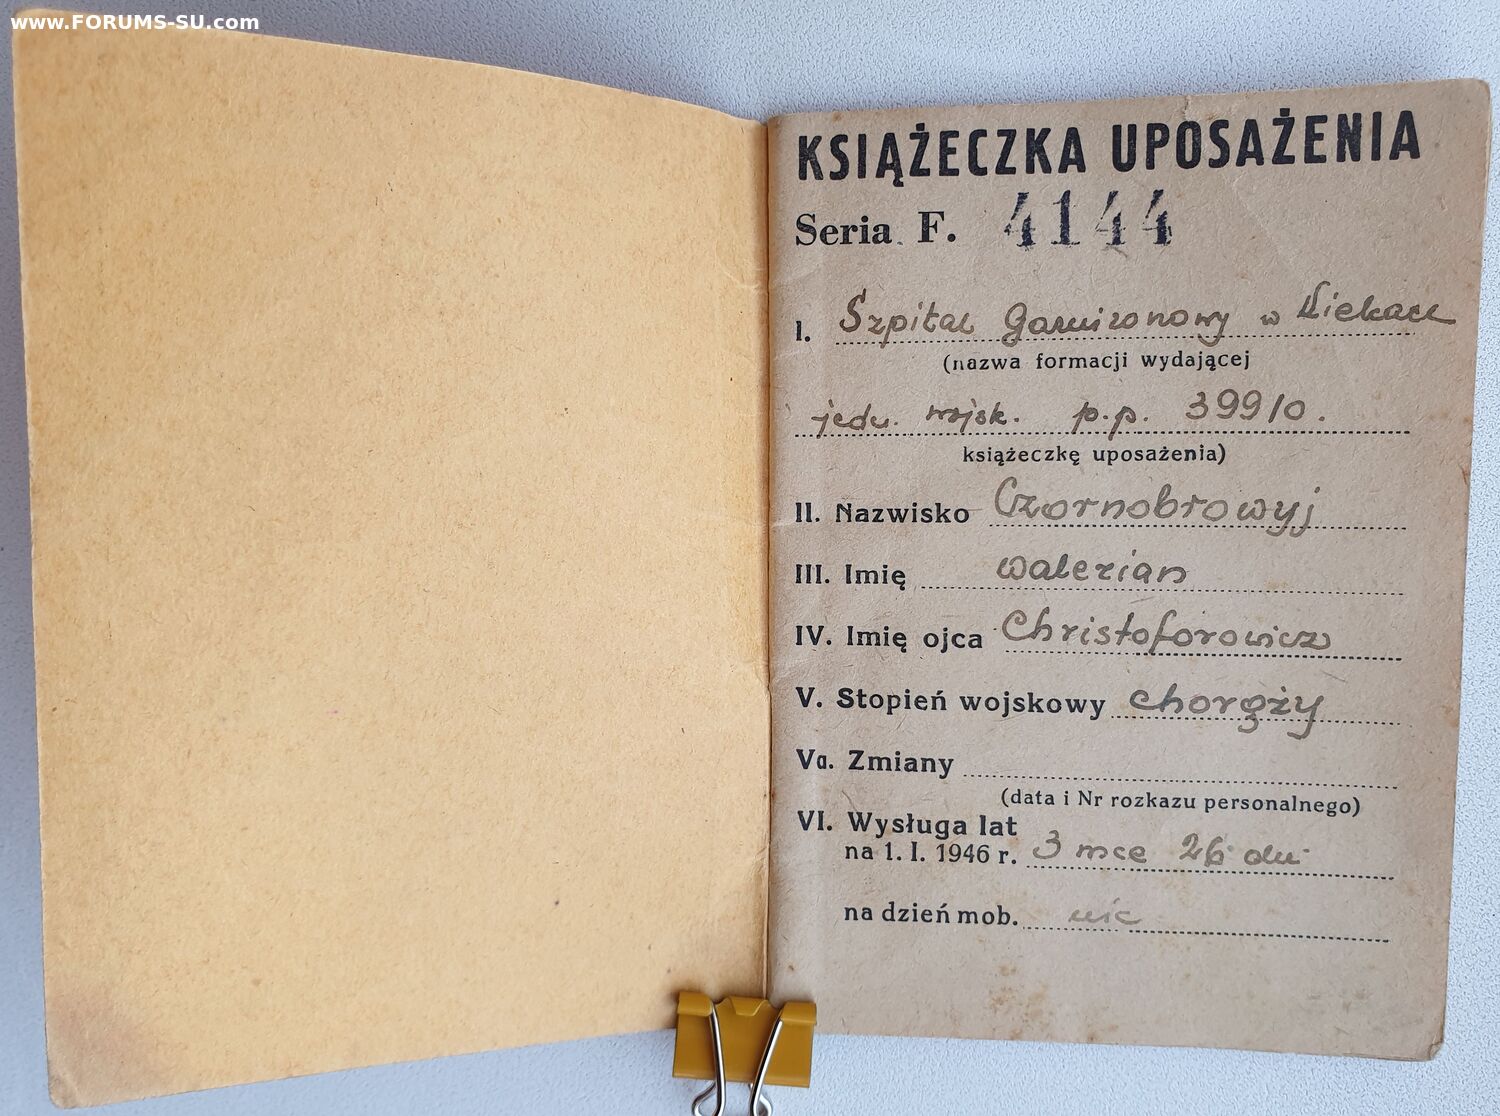 www.FORUMS-SU.com
KSIĄŻECZKA UPOSAŻENIA
Seria F. 4144
I. Szpital Garnizonowy w
(nazwa formacji wydającej
jedn. wojsk. p.p. 39910.
książeczkę uposażenia)
II. Nazwisko Czornobrowyj
III. Imię Walerian
IV. Imię ojca Christoforowicz
V. Stopień wojskowy chorąży
Va. Zmiany
(data i Nr rozkazu personalnego)
VI. Wysługa lat
na 1. I. 1946 r. 3 mce 26 dni
na dzień mob. nic